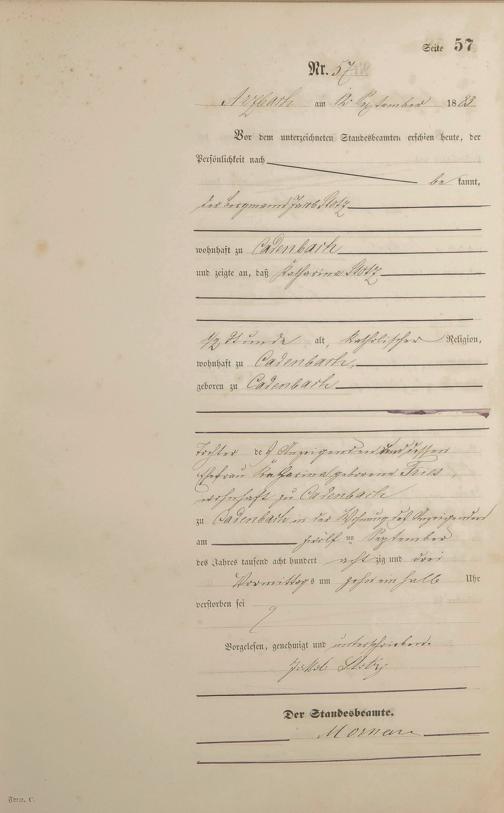 Seite 57
Nr. 57
Arzbach am 12 September 1883
Vor dem unterzeichneten Standesbeamten erschien heute, der
Persönlichkeit nach
be kannt,
der Bergmann Jacob Stotz
wohnhaft zu Cadenbach
und zeigte an, daß Katharina Stotz
1/2 Stunde alt, katholischer Religion,
wohnhaft zu Cadenbach,
geboren zu Cadenbach
Tochter des Anzeigenden und dessen
Ehefrau Katharina geborene
wohnhaft zu Cadenbach
zu Cadenbach in der Wohnung des Anzeigenden
am zwölf ten September
des Jahres tausend acht hundert acht zig und drei
Vormittags um zehn ein halb Uhr
verstorben sei
Vorgelesen, genehmigt und unterschrieben
Jakob Stotz
Der Standesbeamte.
Form. C.